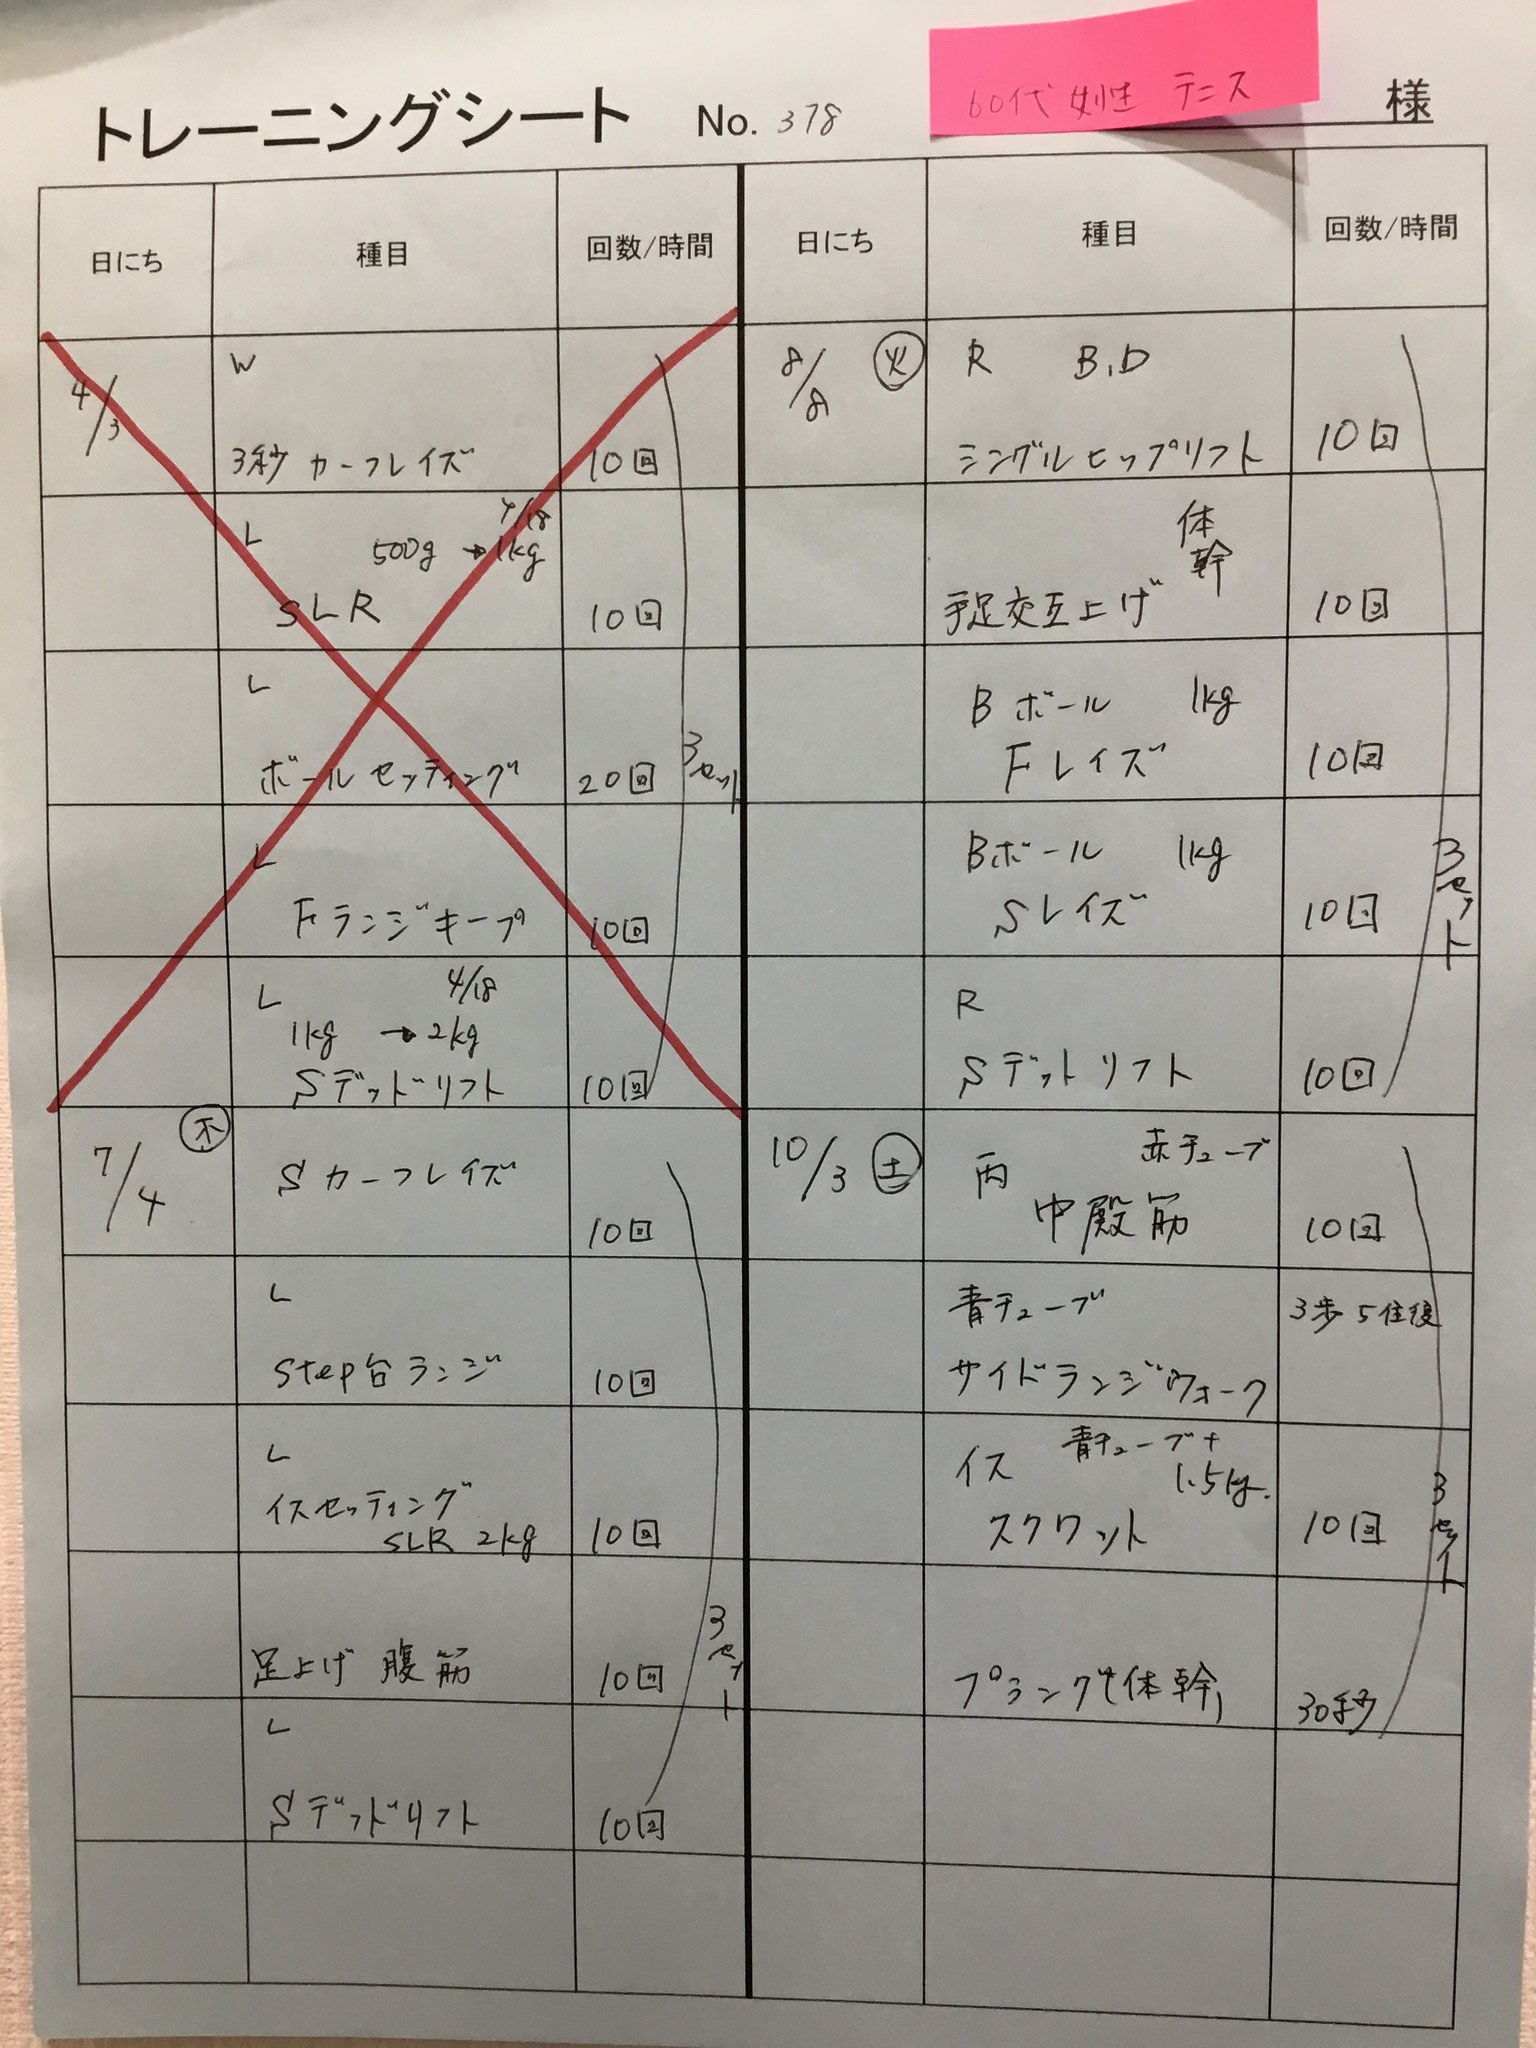 トレーニングシート No. 378 60代 女性 テニス 様
日にち 種目 回数/時間
4/3 W
3秒 カーフレイズ 10回
L 500g → 4/18 1kg
SLR 10回
L
ボールセッティング 20回
L
Fランジキープ 10回
L 4/18
1kg → 2kg
Sデッドリフト 10回
3セット
7/4 木 Sカーフレイズ 10回
L
step台ランジ 10回
L
イスセッティング
SLR 2kg 10回
足上げ 腹筋 10回
L
Sデッドリフト 10回
3セット
日にち 種目 回数/時間
8/8 火 R B.D
シングルヒップリフト 10回
体幹
手足交互上げ 10回
Bボール 1kg
Fレイズ 10回
Bボール 1kg
Sレイズ 10回
R
Sデットリフト 10回
3セット
10/3 土 両 赤チューブ
中殿筋 10回
青チューブ 3歩 5往復
サイドランジウォーク
イス 青チューブ+
1.5kg.
スクワット 10回
30秒
3セット